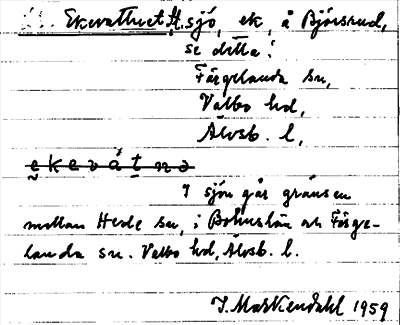 Ekevattnet, sjö, ek, å Björsrud,
se detta!
Färgelanda sn,
Valbo hd,
Älvsb. l,
ekevátnə
I sjön går gränsen
mellan Hede sn, i Bohuslän och Färge-
landa sn. Valbo hd, Älvsb. l.
1959